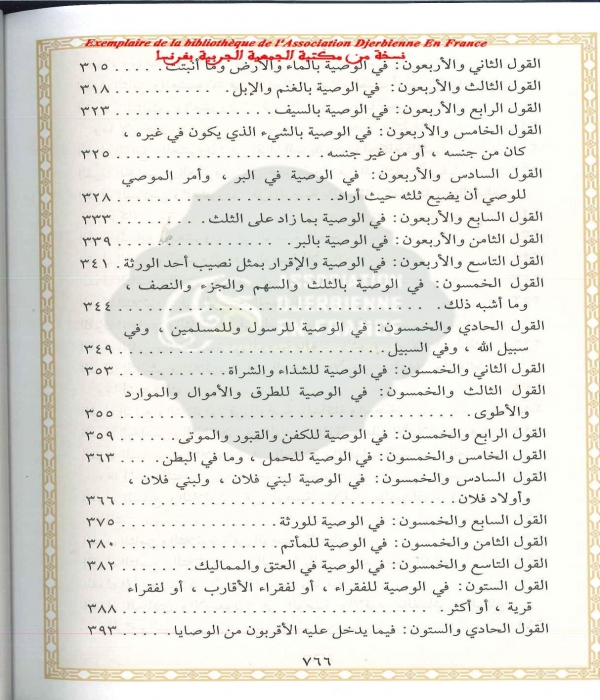 Exemplaire de la bibliothèque de l'Association Djerbienne En France
نسخة من مكتبة الجمعية الجربية بفرنسا
القول الثاني والأربعون: في الوصية بالماء والأرض وما أنبتت. . . . . . ٣١٥
القول الثالث والأربعون: في الوصية بالغنم والإبل. . . . . . . . . . . . ٣١٨
القول الرابع والأربعون: في الوصية بالسيف. . . . . . . . . . . . . . . ٣٢٣
القول الخامس والأربعون: في الوصية بالشيء الذي يكون في غيره ،
كان من جنسه ، أو من غير جنسه. . . . . . . . . . . . . . . . . . . ٣٢٥
القول السادس والأربعون: في الوصية في البر ، وأمر الموصي
للوصي أن يضيع ثلثه حيث أراد. . . . . . . . . . . . . . . . . . . . ٣٢٨
القول السابع والأربعون: في الوصية بما زاد على الثلث. . . . . . . . . ٣٣٣
القول الثامن والأربعون: في الوصية بالبر. . . . . . . . . . . . . . . . ٣٣٩
القول التاسع والأربعون: في الوصية والإقرار بمثل نصيب أحد الورثة. ٣٤١
القول الخمسون: في الوصية بالثلث والسهم والجزء والنصف ،
وما أشبه ذلك. . . . . . . . . . . . . . . . . . . . . . . . . . . . ٣٤٤
القول الحادي والخمسون: في الوصية للرسول وللمسلمين ، وفي
سبيل الله ، وفي السبيل. . . . . . . . . . . . . . . . . . . . . . . . ٣٤٩
القول الثاني والخمسون: في الوصية للشذاء والشراة. . . . . . . . . . . ٣٥٣
القول الثالث والخمسون: في الوصية للطرق والأموال والموارد
والأطوى. . . . . . . . . . . . . . . . . . . . . . . . . . . . . . ٣٥٥
القول الرابع والخمسون: في الوصية للكفن والقبور والموتى. . . . . . . ٣٥٩
القول الخامس والخمسون: في الوصية للحمل ، وما في البطن. . . . . ٣٦٣
القول السادس والخمسون: في الوصية لبني فلان ، ولبني فلان ،
وأولاد فلان. . . . . . . . . . . . . . . . . . . . . . . . . . . . . ٣٦٦
القول السابع والخمسون: في الوصية للورثة. . . . . . . . . . . . . . . ٣٧٥
القول الثامن والخمسون: في الوصية للمأتم. . . . . . . . . . . . . . . ٣٨٠
القول التاسع والخمسون: في الوصية في العتق والمماليك. . . . . . . . ٣٨٢
القول الستون: في الوصية للفقراء ، أو لفقراء الأقارب ، أو لفقراء
قرية ، أو أكثر. . . . . . . . . . . . . . . . . . . . . . . . . . . . ٣٨٨
القول الحادي والستون: فيما يدخل عليه الأقربون من الوصايا. . . . . ٣٩٣
٧٦٦